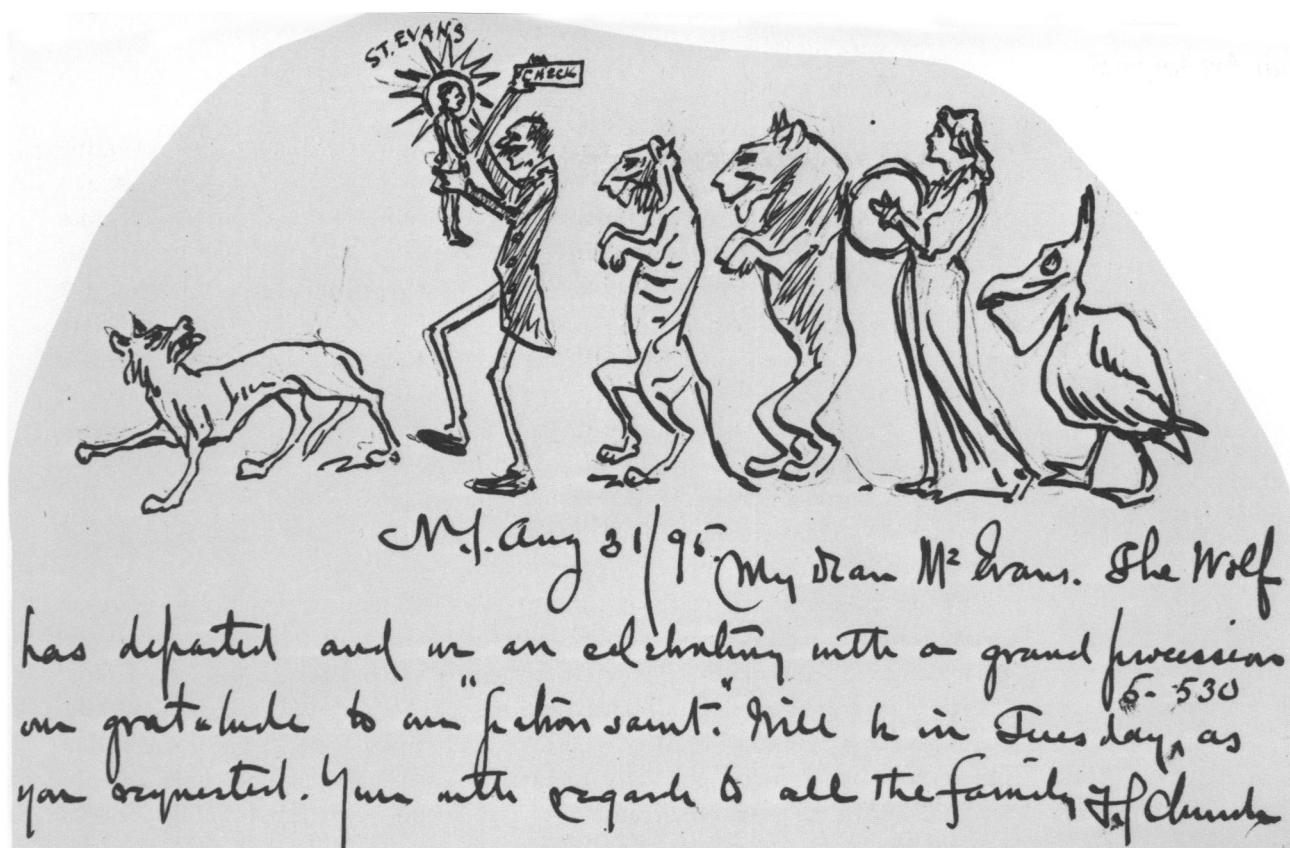 ST. EVANS
CHECK
N.Y. Aug 31/95. My dear Mr Evans. The Wolf
has departed and we are celebrating with a grand procession
our gratitude to our "patron saint." Will be in Tuesday, as
5-530
you requested. Yours with regards to all the family F.S. Church